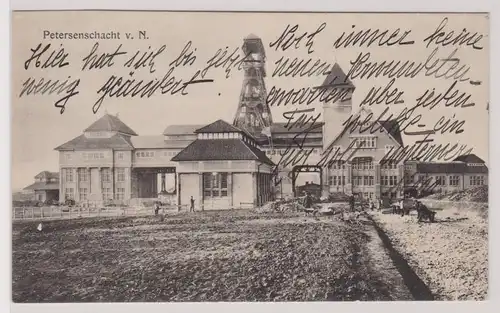 Petersenschacht v. N.
Hier hat sich bis jetzt
wenig geändert
Noch immer keine
neuen Verwundeten
erwarten aber jeden
Tag welche ein